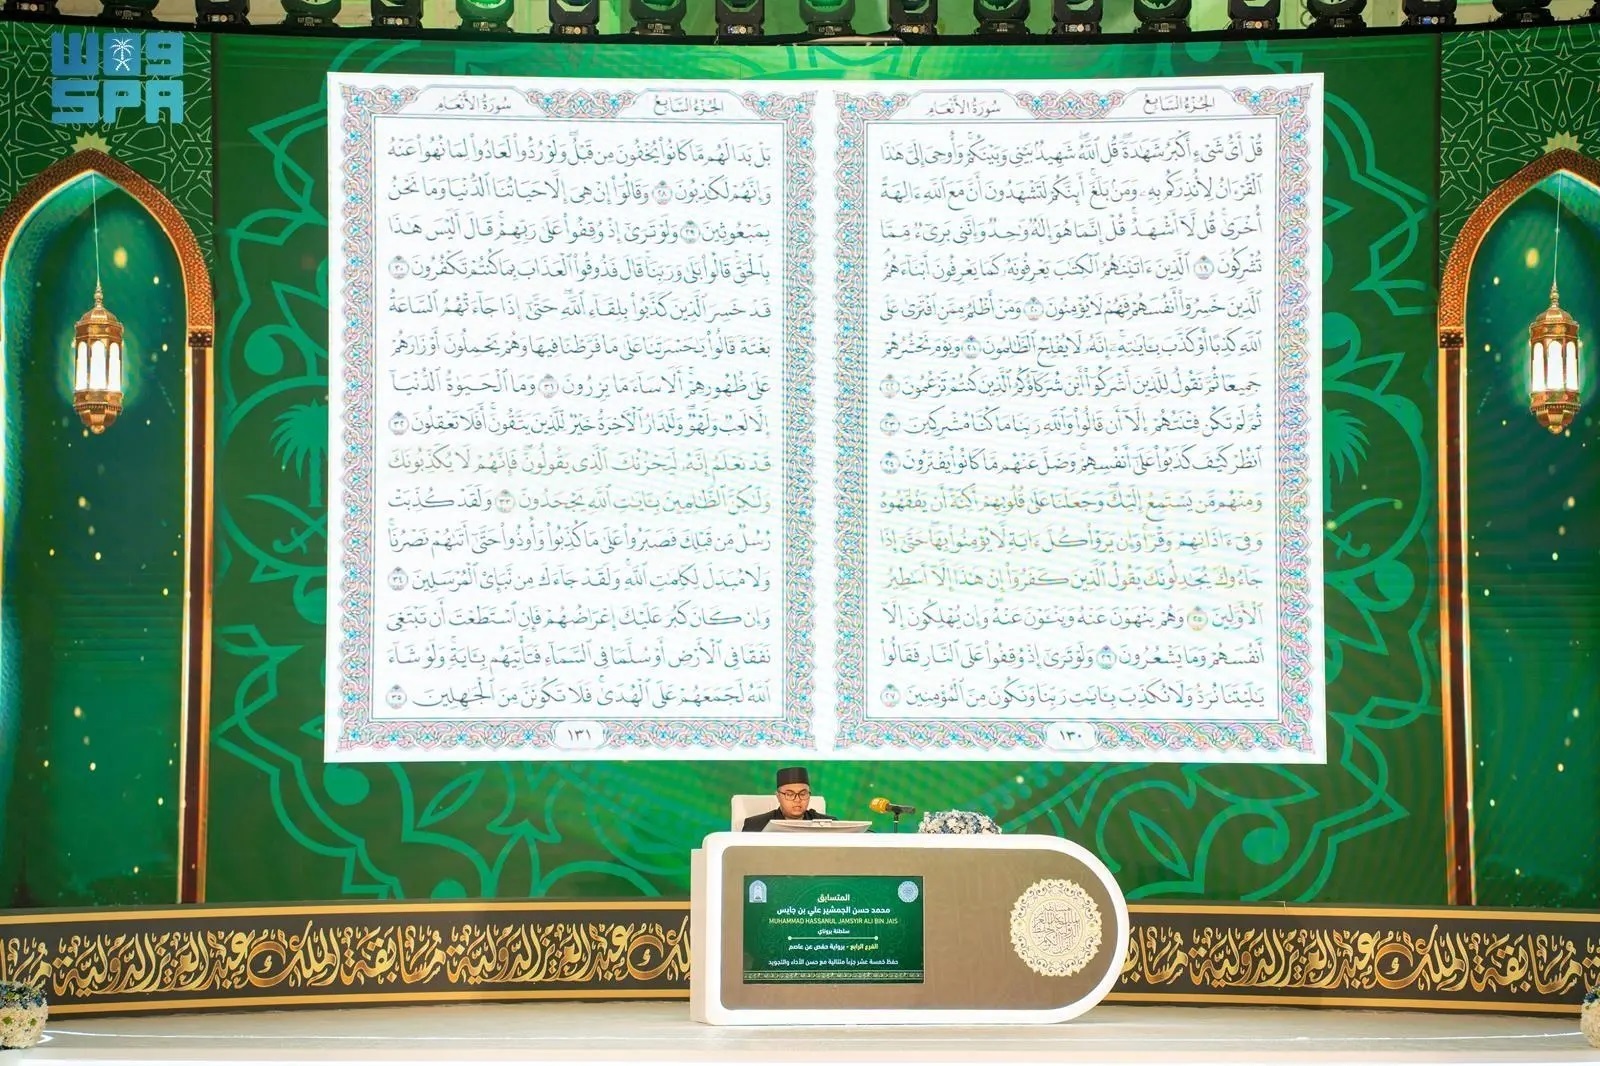 واس
SPA
سُورَةُ الأَنْعَامِ الجُزْءُ السَّابِعُ
قُلْ أَىُّ شَىْءٍ أَكْبَرُ شَهَٰدَةًۖ قُلِ ٱللَّهُۖ شَهِيدُۢ بَيْنِى وَبَيْنَكُمْۚ وَأُوحِىَ إِلَىَّ هَٰذَا
ٱلْقُرْءَانُ لِأُنذِرَكُم بِهِۦ وَمَنۢ بَلَغَۚ أَئِنَّكُمْ لَتَشْهَدُونَ أَنَّ مَعَ ٱللَّهِ ءَالِهَةً
أُخْرَىٰۚ قُل لَّآ أَشْهَدُۚ قُلْ إِنَّمَا هُوَ إِلَٰهٌ وَٰحِدٌ وَإِنَّنِى بَرِىٓءٌ مِّمَّا
تُشْرِكُونَ ١٩ ٱلَّذِينَ ءَاتَيْنَٰهُمُ ٱلْكِتَٰبَ يَعْرِفُونَهُۥ كَمَا يَعْرِفُونَ أَبْنَآءَهُمُ
ٱلَّذِينَ خَسِرُوٓا۟ أَنفُسَهُمْ فَهُمْ لَا يُؤْمِنُونَ ٢٠ وَمَنْ أَظْلَمُ مِمَّنِ ٱفْتَرَىٰ عَلَى
ٱللَّهِ كَذِبًا أَوْ كَذَّبَ بِـَٔايَٰتِهِۦٓۚ إِنَّهُۥ لَا يُفْلِحُ ٱلظَّٰلِمُونَ ٢١ وَيَوْمَ نَحْشُرُهُمْ
جَمِيعًا ثُمَّ نَقُولُ لِلَّذِينَ أَشْرَكُوٓا۟ أَيْنَ شُرَكَآؤُكُمُ ٱلَّذِينَ كُنتُمْ تَزْعُمُونَ ٢٢
ثُمَّ لَمْ تَكُن فِتْنَتُهُمْ إِلَّآ أَن قَالُوا۟ وَٱللَّهِ رَبِّنَا مَا كُنَّا مُشْرِكِينَ ٢٣
ٱنظُرْ كَيْفَ كَذَبُوا۟ عَلَىٰٓ أَنفُسِهِمْۚ وَضَلَّ عَنْهُم مَّا كَانُوا۟ يَفْتَرُونَ ٢٤
وَمِنْهُم مَّن يَسْتَمِعُ إِلَيْكَۖ وَجَعَلْنَا عَلَىٰ قُلُوبِهِمْ أَكِنَّةً أَن يَفْقَهُوهُ
وَفِىٓ ءَاذَانِهِمْ وَقْرًاۚ وَإِن يَرَوْا۟ كُلَّ ءَايَةٍ لَّا يُؤْمِنُوا۟ بِهَاۚ حَتَّىٰٓ إِذَا
جَآءُوكَ يُجَٰدِلُونَكَ يَقُولُ ٱلَّذِينَ كَفَرُوٓا۟ إِنْ هَٰذَآ إِلَّآ أَسَٰطِيرُ
ٱلْأَوَّلِينَ ٢٥ وَهُمْ يَنْهَوْنَ عَنْهُ وَيَنْـَٔوْنَ عَنْهُۖ وَإِن يُهْلِكُونَ إِلَّآ
أَنفُسَهُمْ وَمَا يَشْعُرُونَ ٢٦ وَلَوْ تَرَىٰٓ إِذْ وُقِفُوا۟ عَلَى ٱلنَّارِ فَقَالُوا۟
يَٰلَيْتَنَا نُرَدُّ وَلَا نُكَذِّبَ بِـَٔايَٰتِ رَبِّنَا وَنَكُونَ مِنَ ٱلْمُؤْمِنِينَ ٢٧
١٣٠
سُورَةُ الأَنْعَامِ الجُزْءُ السَّابِعُ
بَلْ بَدَا لَهُم مَّا كَانُوا۟ يُخْفُونَ مِن قَبْلُۖ وَلَوْ رُدُّوا۟ لَعَادُوا۟ لِمَا نُهُوا۟ عَنْهُ
وَإِنَّهُمْ لَكَٰذِبُونَ ٢٨ وَقَالُوٓا۟ إِنْ هِىَ إِلَّا حَيَاتُنَا ٱلدُّنْيَا وَمَا نَحْنُ
بِمَبْعُوثِينَ ٢٩ وَلَوْ تَرَىٰٓ إِذْ وُقِفُوا۟ عَلَىٰ رَبِّهِمْۚ قَالَ أَلَيْسَ هَٰذَا
بِٱلْحَقِّۚ قَالُوا۟ بَلَىٰ وَرَبِّنَاۚ قَالَ فَذُوقُوا۟ ٱلْعَذَابَ بِمَا كُنتُمْ تَكْفُرُونَ ٣٠
قَدْ خَسِرَ ٱلَّذِينَ كَذَّبُوا۟ بِلِقَآءِ ٱللَّهِۖ حَتَّىٰٓ إِذَا جَآءَتْهُمُ ٱلسَّاعَةُ
بَغْتَةً قَالُوا۟ يَٰحَسْرَتَنَا عَلَىٰ مَا فَرَّطْنَا فِيهَا وَهُمْ يَحْمِلُونَ أَوْزَارَهُمْ
عَلَىٰ ظُهُورِهِمْۚ أَلَا سَآءَ مَا يَزِرُونَ ٣١ وَمَا ٱلْحَيَوٰةُ ٱلدُّنْيَآ
إِلَّا لَعِبٌ وَلَهْوٌۖ وَلَلدَّارُ ٱلْءَاخِرَةُ خَيْرٌ لِّلَّذِينَ يَتَّقُونَۗ أَفَلَا تَعْقِلُونَ ٣٢
قَدْ نَعْلَمُ إِنَّهُۥ لَيَحْزُنُكَ ٱلَّذِى يَقُولُونَۖ فَإِنَّهُمْ لَا يُكَذِّبُونَكَ
وَلَٰكِنَّ ٱلظَّٰلِمِينَ بِـَٔايَٰتِ ٱللَّهِ يَجْحَدُونَ ٣٣ وَلَقَدْ كُذِّبَتْ
رُسُلٌ مِّن قَبْلِكَ فَصَبَرُوا۟ عَلَىٰ مَا كُذِّبُوا۟ وَأُوذُوا۟ حَتَّىٰٓ أَتَىٰهُمْ نَصْرُنَاۚ
وَلَا مُبَدِّلَ لِكَلِمَٰتِ ٱللَّهِۚ وَلَقَدْ جَآءَكَ مِن نَّبَإِى۟ ٱلْمُرْسَلِينَ ٣٤
وَإِن كَانَ كَبُرَ عَلَيْكَ إِعْرَاضُهُمْ فَإِنِ ٱسْتَطَعْتَ أَن تَبْتَغِىَ
نَفَقًا فِى ٱلْأَرْضِ أَوْ سُلَّمًا فِى ٱلسَّمَآءِ فَتَأْتِيَهُم بِـَٔايَةٍۚ وَلَوْ شَآءَ
ٱللَّهُ لَجَمَعَهُمْ عَلَى ٱلْهُدَىٰۚ فَلَا تَكُونَنَّ مِنَ ٱلْجَٰهِلِينَ ٣٥
١٣١
المتسابق
محمد حسن الجمشير علي بن جايس
MUHAMMAD HASSANUL JAMSYIR ALI BIN JAIS
سلطنة بروناي
الفرع الرابع - برواية حفص عن عاصم
حفظ خمسة عشر جزءاً متتالية مع حسن الأداء والتجويد
مسابقة الملك عبدالعزيز الدولية مسابقة الملك عبدالعزيز الدولية
مسابقة الملك عبدالعزيز الدولية